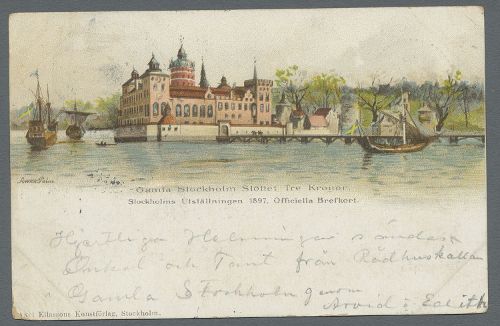 Anna Palm
Gamla Stockholm Slottet Tre Kronor.
Stockholms Utställningen 1897. Officiella Brefkort.
Hjertliga Helsningar sändas
Onkel och Tant från Rådhuskällan
Gamla Stockholm genom
Arvid & Edith
Eliassons Konstförlag, Stockholm.